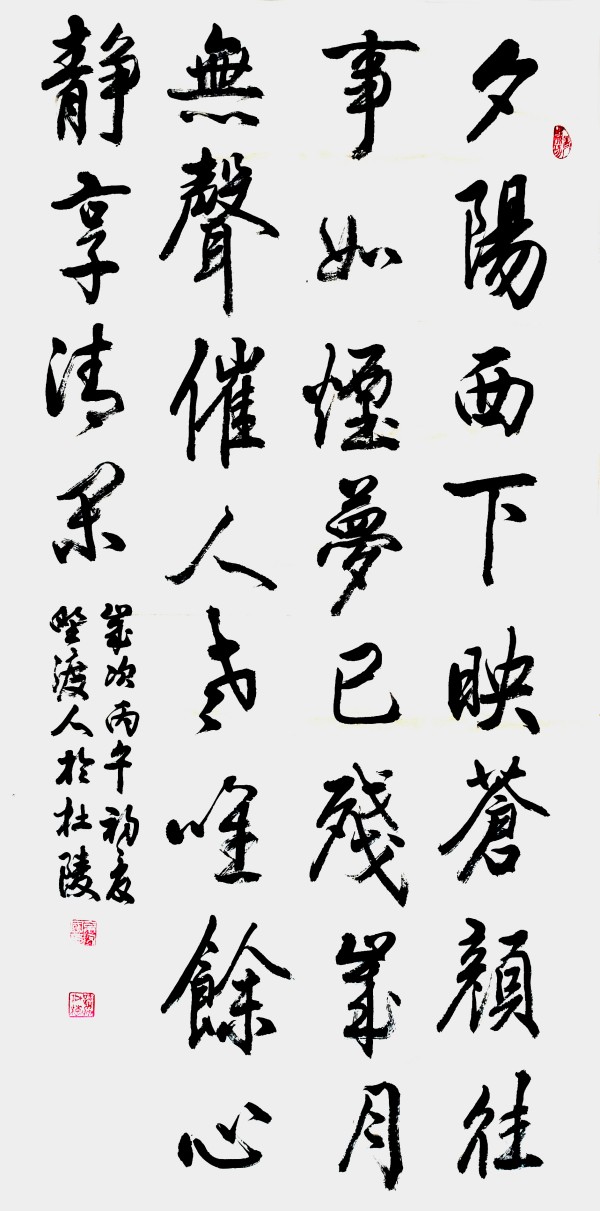 夕陽西下映蒼顏往
事如煙夢已殘歲月
無聲催人老唯餘心
靜享清閑
歲次丙午初夏
野渡人於杜陵